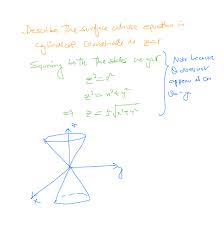 Describe the surface whose equation in
cylindrical coordinate is z=r
Squaring both the sides we get
z² = r²
z² = x²+y²
⇒ z = ±√x²+y²
Note because
θ does not
appear
z
y
x